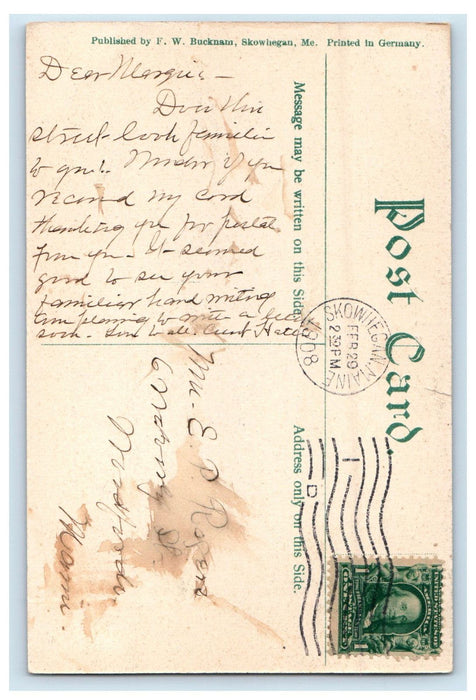 Published by F. W. Bucknam, Skowhegan, Me. Printed in Germany.
Dear Margie -
Does this
street look familiar
to you? Wonder if you
received my card
thanking you for postal
from you - It seemed
good to see your
familiar hand writing
Am planning to write a letter
soon. Love to all. Aunt Hattie
Message may be written on this Side.
Post Card.
SKOWHEGAN, MAINE
FEB 29
2 30 PM
1908
Address only on this Side.
Mrs. E. P. Rogers
St.
Maine.
UNITED STATES OF AMERICA